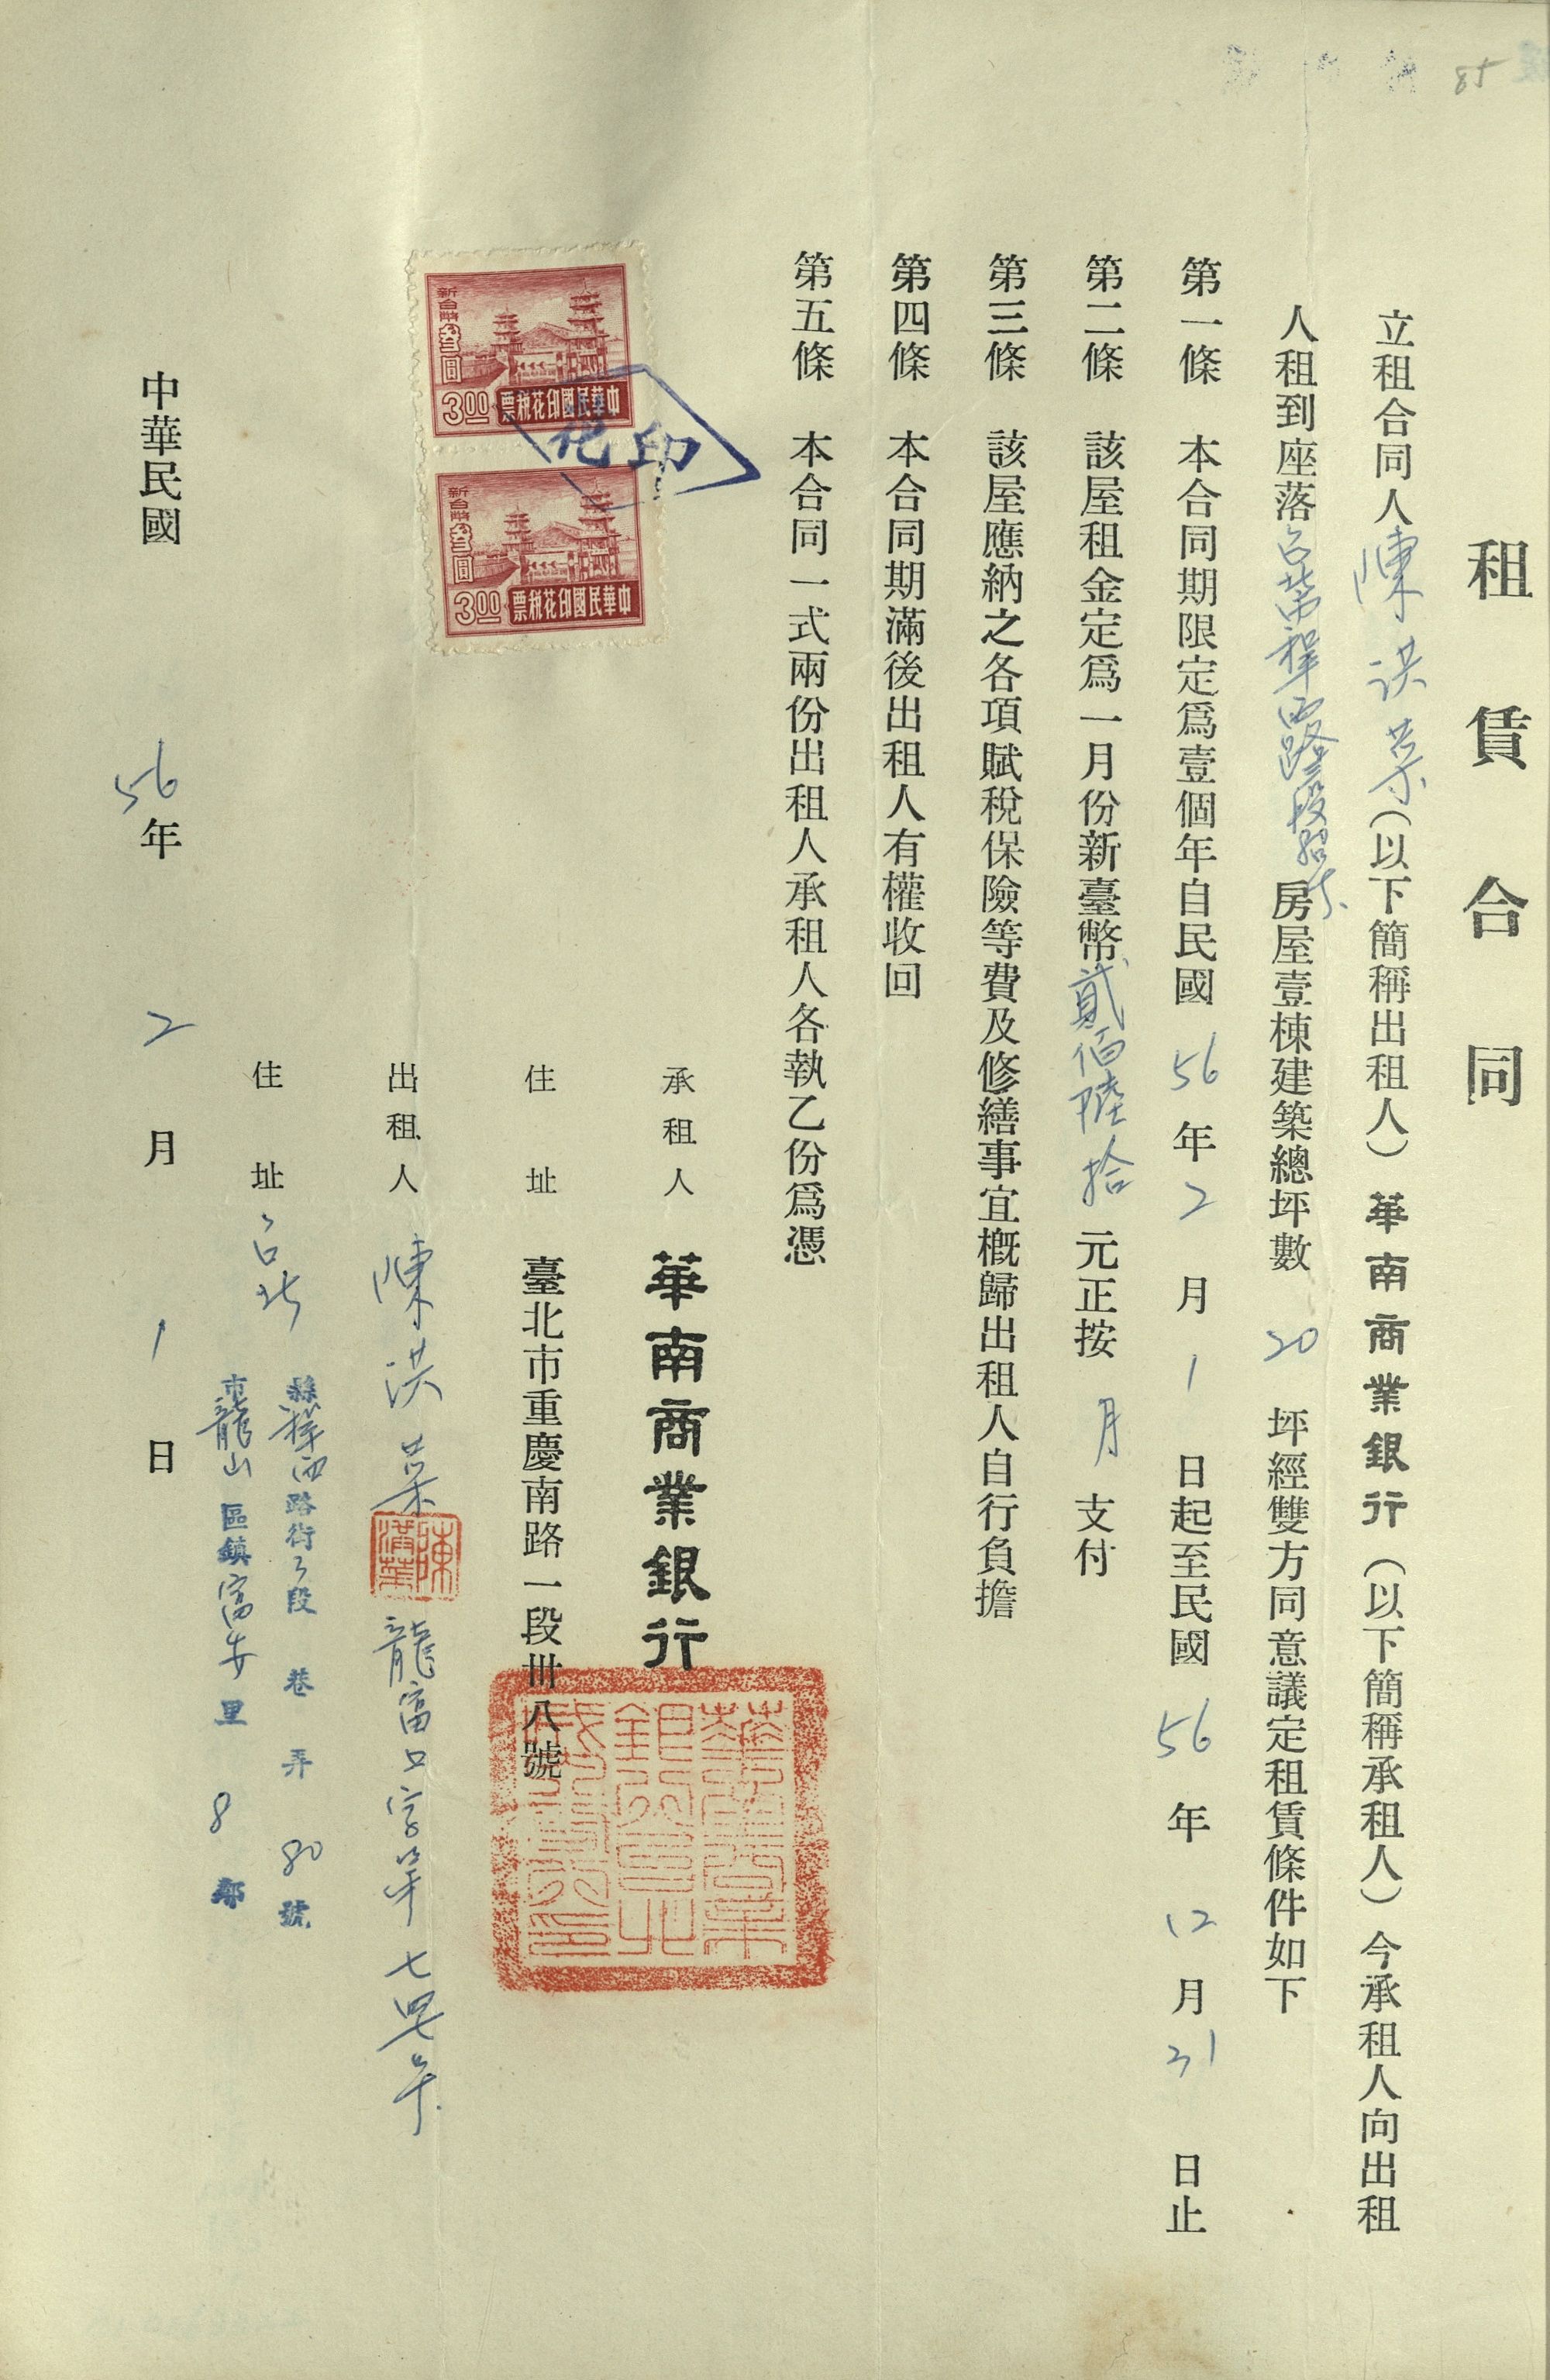 85
租賃合同
立租合同人陳洪菜（以下簡稱出租人）華南商業銀行（以下簡稱承租人）今承租人向出租
人租到座落台北市桂西路三段80号房屋壹棟建築總坪數20坪經雙方同意議定租賃條件如下
第一條 本合同期限定爲壹個年自民國56年2月1日起至民國56年12月31日止
第二條 該屋租金定爲一月份新臺幣貳佰陸拾元正按月支付
第三條 該屋應納之各項賦稅保險等費及修繕事宜槪歸出租人自行負擔
第四條 本合同期滿後出租人有權收回
第五條 本合同一式兩份出租人承租人各執乙份爲憑
印花
新台幣叁圓
3.00 中華民國印花稅票
新台幣叁圓
3.00 中華民國印花稅票
承租人 華南商業銀行
住址 臺北市重慶南路一段卅八號
出租人 陳洪菜 龍富口字第七四七号
住址 台北
縣 西路街3段 巷 弄 80號
市龍山區鎮富安里 8鄰
中華民國56年2月1日